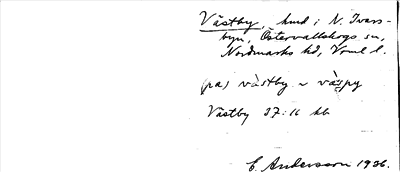 Västby, hmd i N. Ivars-
byn, Östervallskogs sn,
Nordmarks hd, Vrml l.
(på) västby ~ väspy
Västby 37:16 kb
E. Andersson 1936.